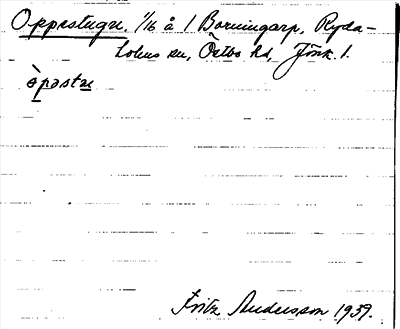 Oppestugan. 1/16 å 1 Borningarp, Ryda-
holms sn, Östbo hd, Jönk. l.
Fritz Andersson 1939.